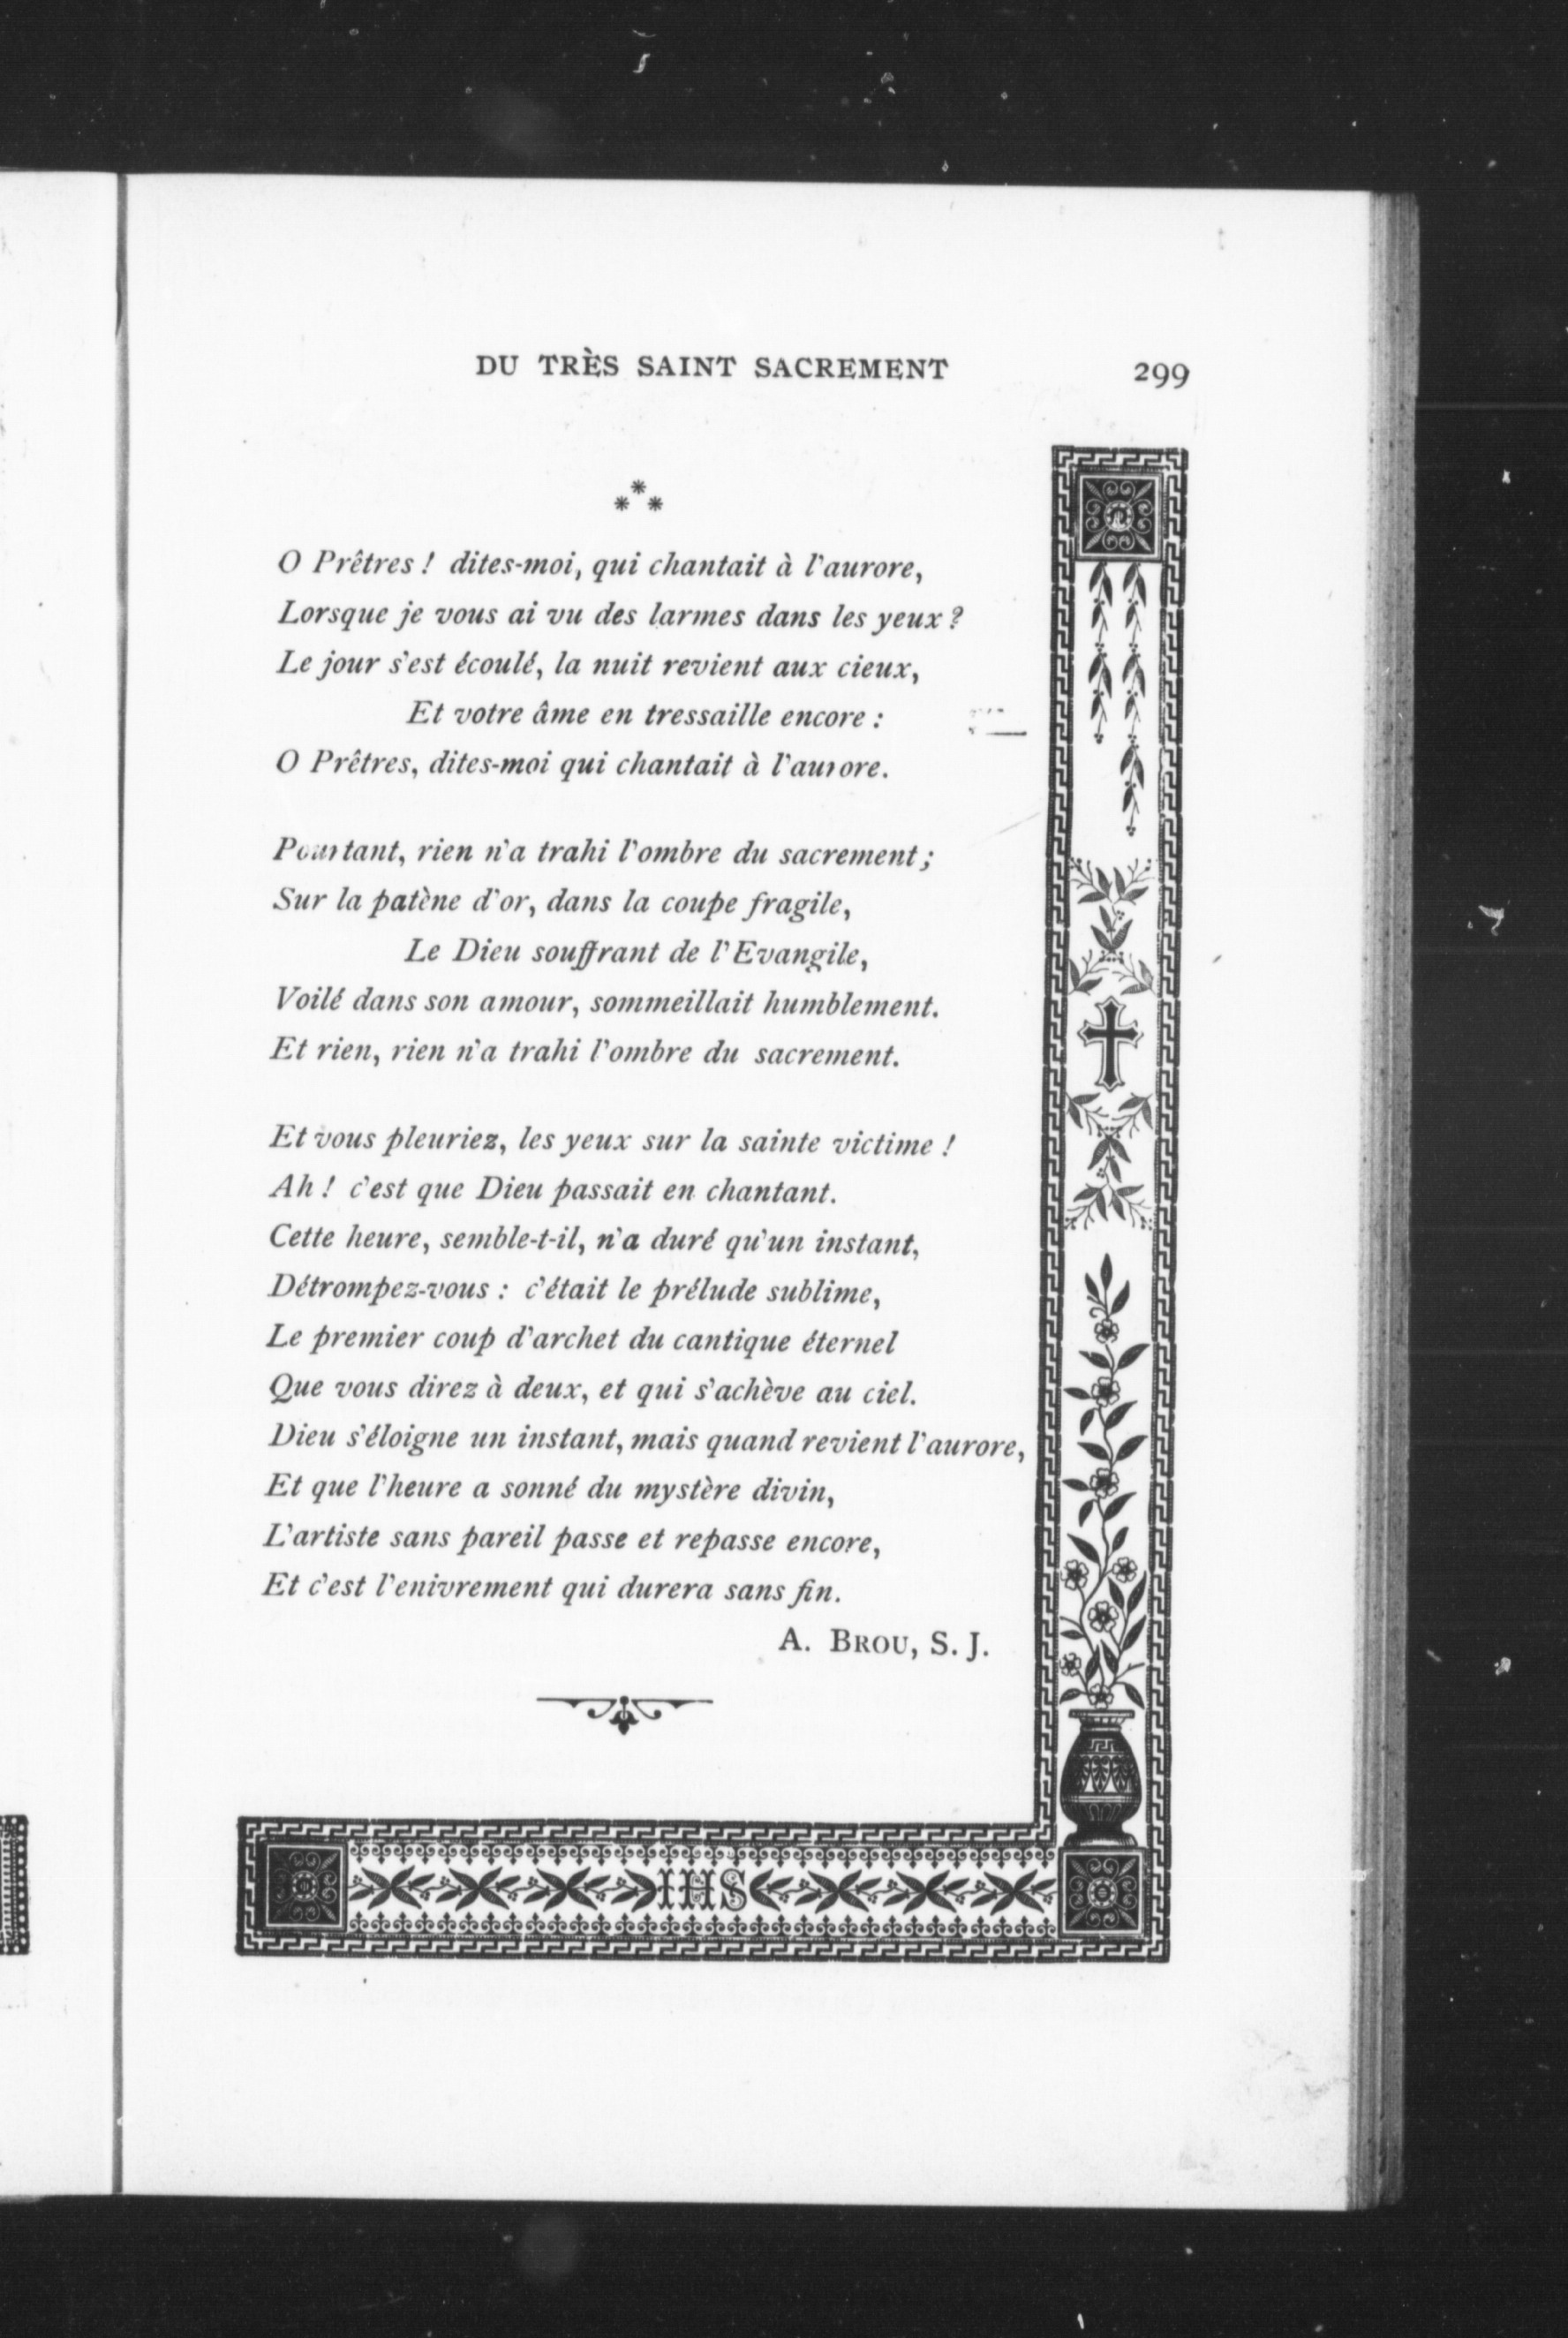 DU TRÈS SAINT SACREMENT 299
***
O Prêtres ! dites-moi, qui chantait à l'aurore,
Lorsque je vous ai vu des larmes dans les yeux ?
Le jour s'est écoulé, la nuit revient aux cieux,
Et votre âme en tressaille encore :
O Prêtres, dites-moi qui chantait à l'aurore.
Pourtant, rien n'a trahi l'ombre du sacrement ;
Sur la patène d'or, dans la coupe fragile,
Le Dieu souffrant de l'Evangile,
Voilé dans son amour, sommeillait humblement.
Et rien, rien n'a trahi l'ombre du sacrement.
Et vous pleuriez, les yeux sur la sainte victime !
Ah ! c'est que Dieu passait en chantant.
Cette heure, semble-t-il, n'a duré qu'un instant,
Détrompez-vous : c'était le prélude sublime,
Le premier coup d'archet du cantique éternel
Que vous direz à deux, et qui s'achève au ciel.
Dieu s'éloigne un instant, mais quand revient l'aurore,
Et que l'heure a sonné du mystère divin,
L'artiste sans pareil passe et repasse encore,
Et c'est l'enivrement qui durera sans fin.
A. BROU, S. J.
IHS